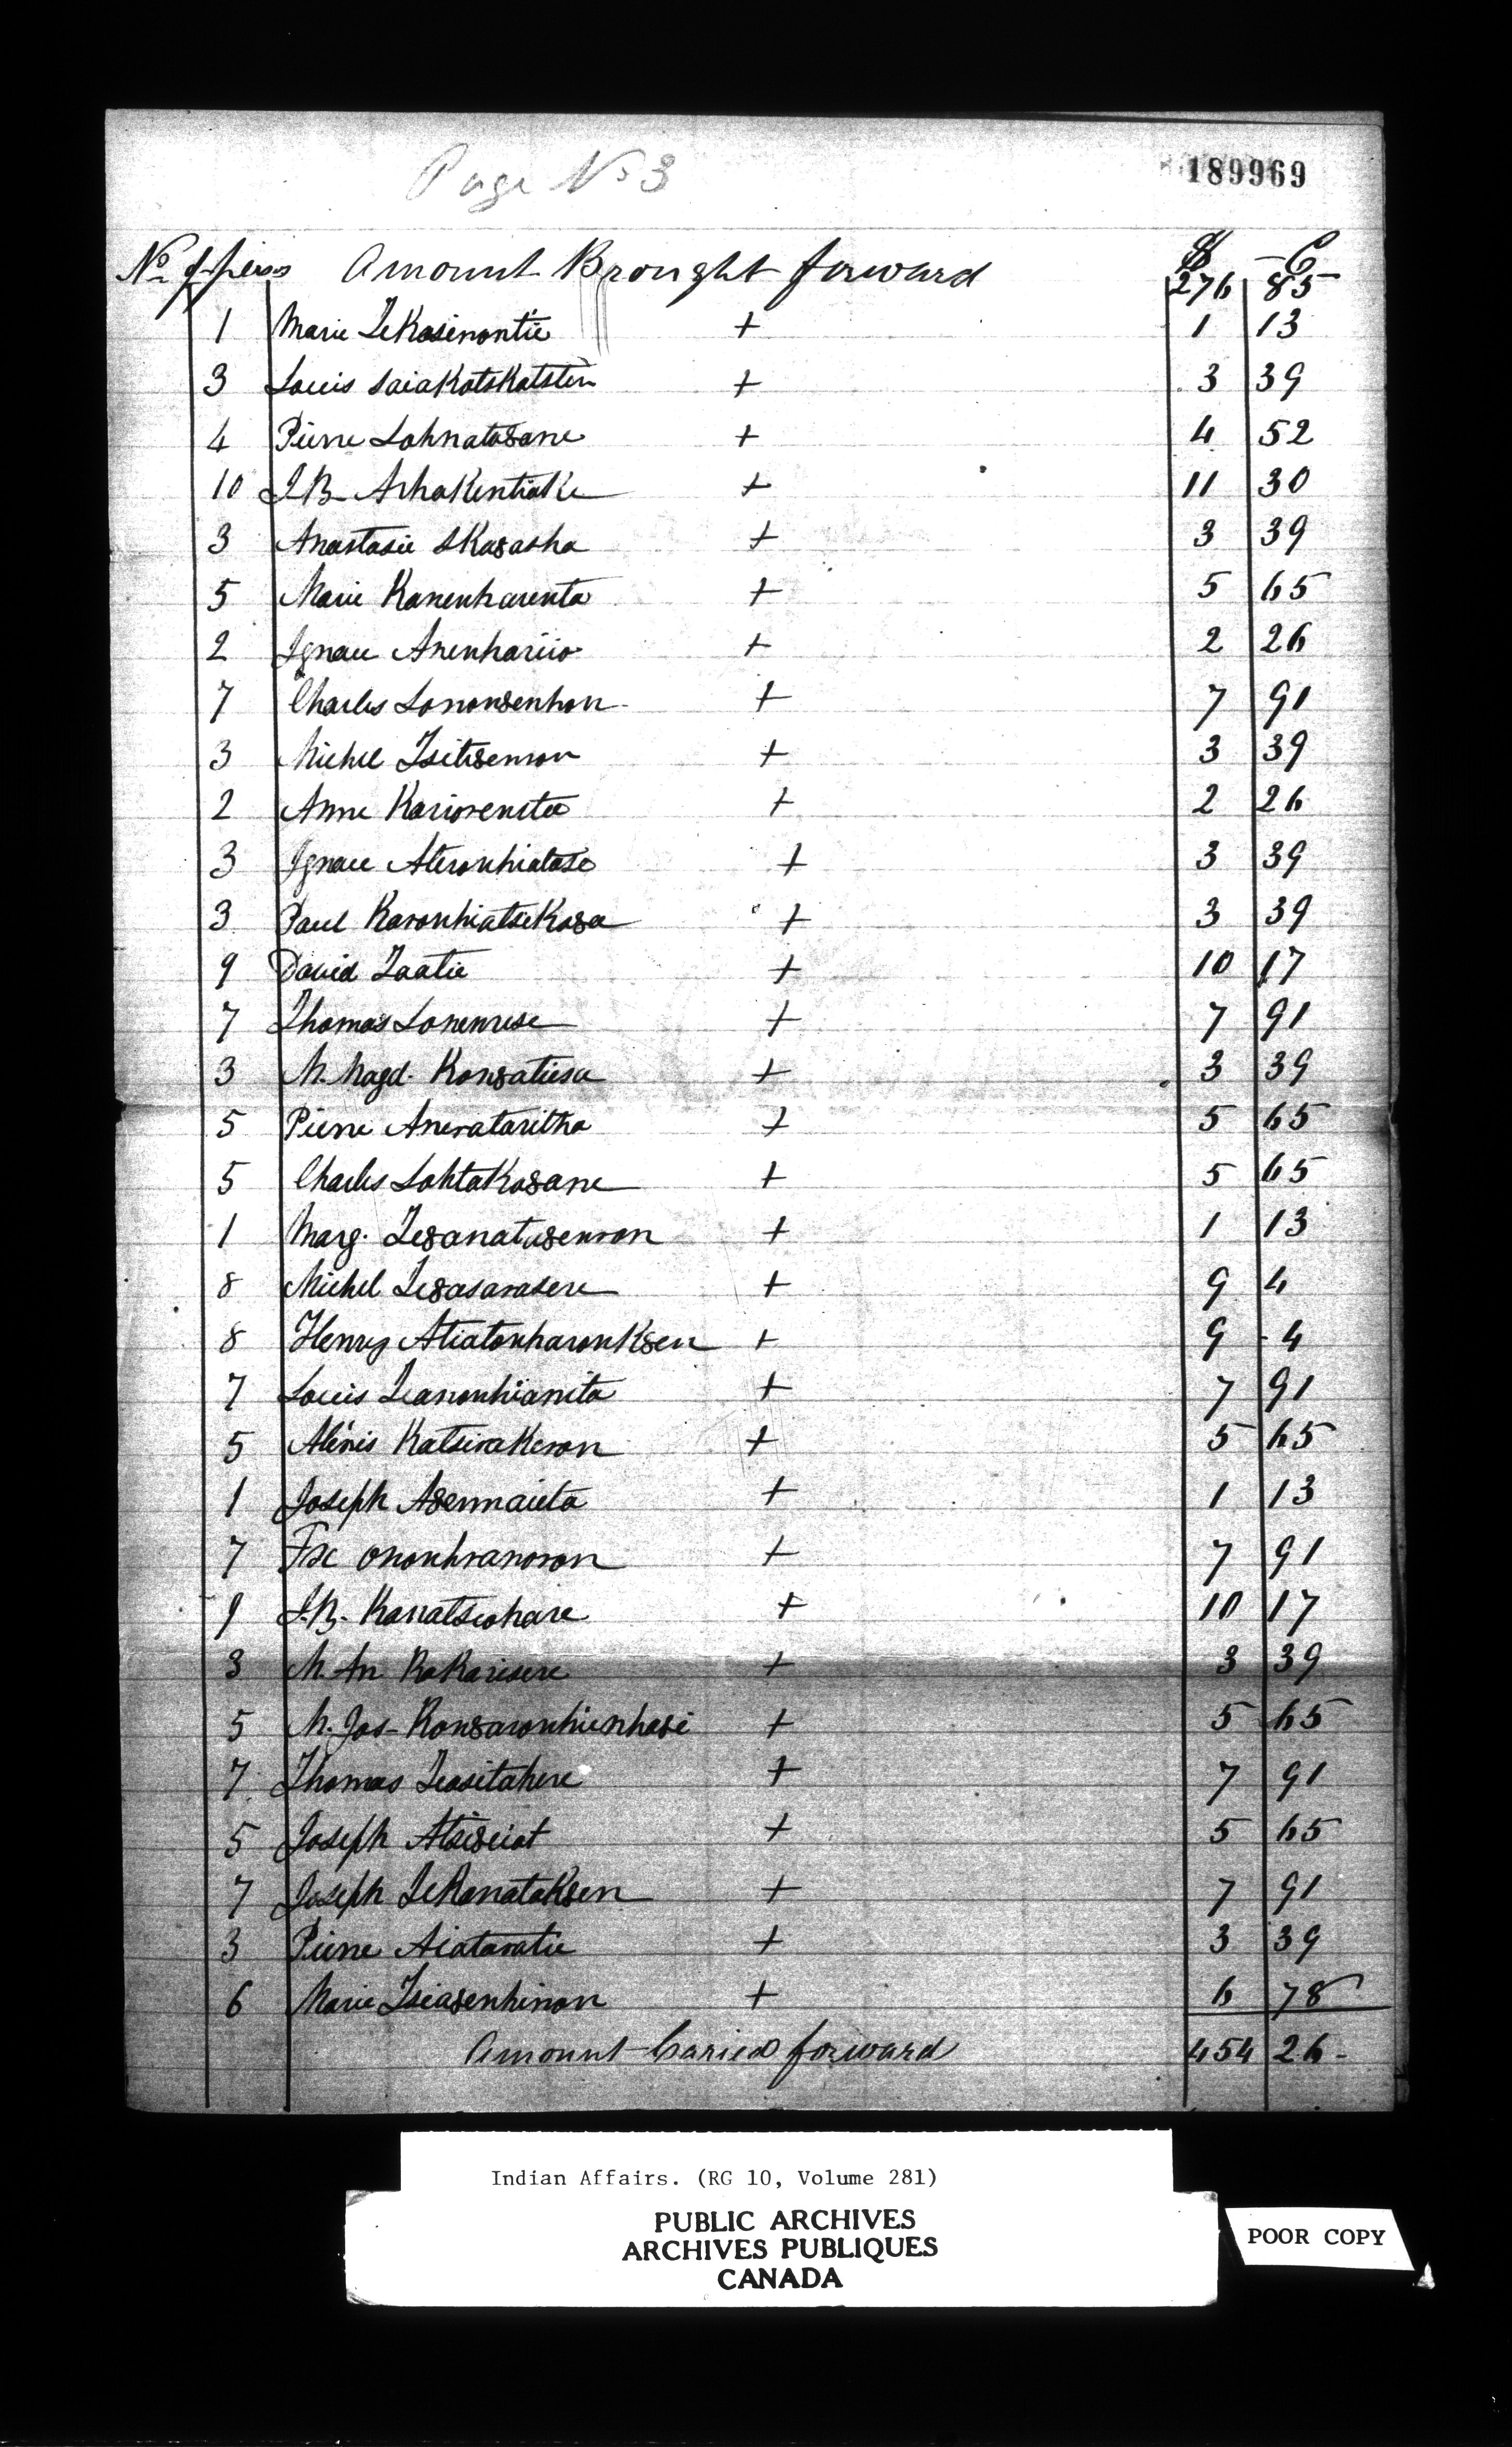 Page No 3
189969
No of pers Amount Brought forward $ 276 C 85
1 Marie Tekasenontie + 1 13
3 Louis Saiakotskatsten + 3 39
4 Pierre Sohnata8ane + 4 52
10 J.B. Arhakentiake + 11 30
3 Anastasie Ska8asha + 3 39
5 Marie Kanenharenta + 5 65
2 Ignace Anenhariio + 2 26
7 Charles Sonon8enhon + 7 91
3 Michel Tsiti8enron + 3 39
2 Anne Kariorensta + 2 26
3 Ignace Ateronhiatase + 3 39
3 Paul Karonhiatseka8a + 3 39
9 David Taatie + 10 17
7 Thomas Sonenrese + 7 91
3 M. Magd. Kon8atiesa + 3 39
5 Pierre Anerataritha + 5 65
5 Charles Sohtako8ane + 5 65
1 Marg. Te8anatase8enron + 1 13
8 Michel Te8asarasere + 9 4
8 Henry Atiatonharonk8en + 9 - 4
7 Louis Teanonhianita + 7 91
5 Alexis Katsirakeron + 5 65
1 Joseph A8ennaieta + 1 13
7 Fsc Ononhranoron + 7 91
9 J.B. Kanatsiohare + 10 17
3 M. An Kakarisere + 3 39
5 M. Jos- Kon8aronhienha8i + 5 65
7 Thomas Teasitahere + 7 91
5 Joseph Atsi8eiot + 5 65
7 Joseph Tekanatak8en + 7 91
3 Pierre Aiataratie + 3 39
6 Marie Tsia8enhinon + 6 78
Amount Caried forward 454 26-
Indian Affairs. (RG 10, Volume 281)
PUBLIC ARCHIVES
ARCHIVES PUBLIQUES
CANADA
POOR COPY